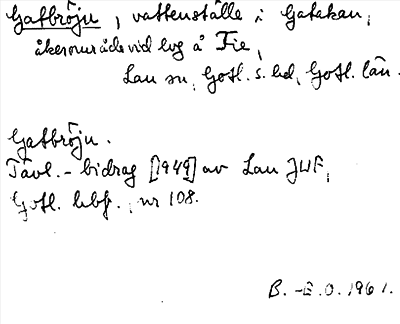 Gatbröju, vattenställe i Gatakan,
åkerområde vid lvg å Fie,
Lau sn, Gotl. s. hd, Gotl. län.
Gatbröju.
Tävl.-bidrag [1949] av Lau JUF,
Gotl. hbf., nr 108.
B. -E. O. 1961.